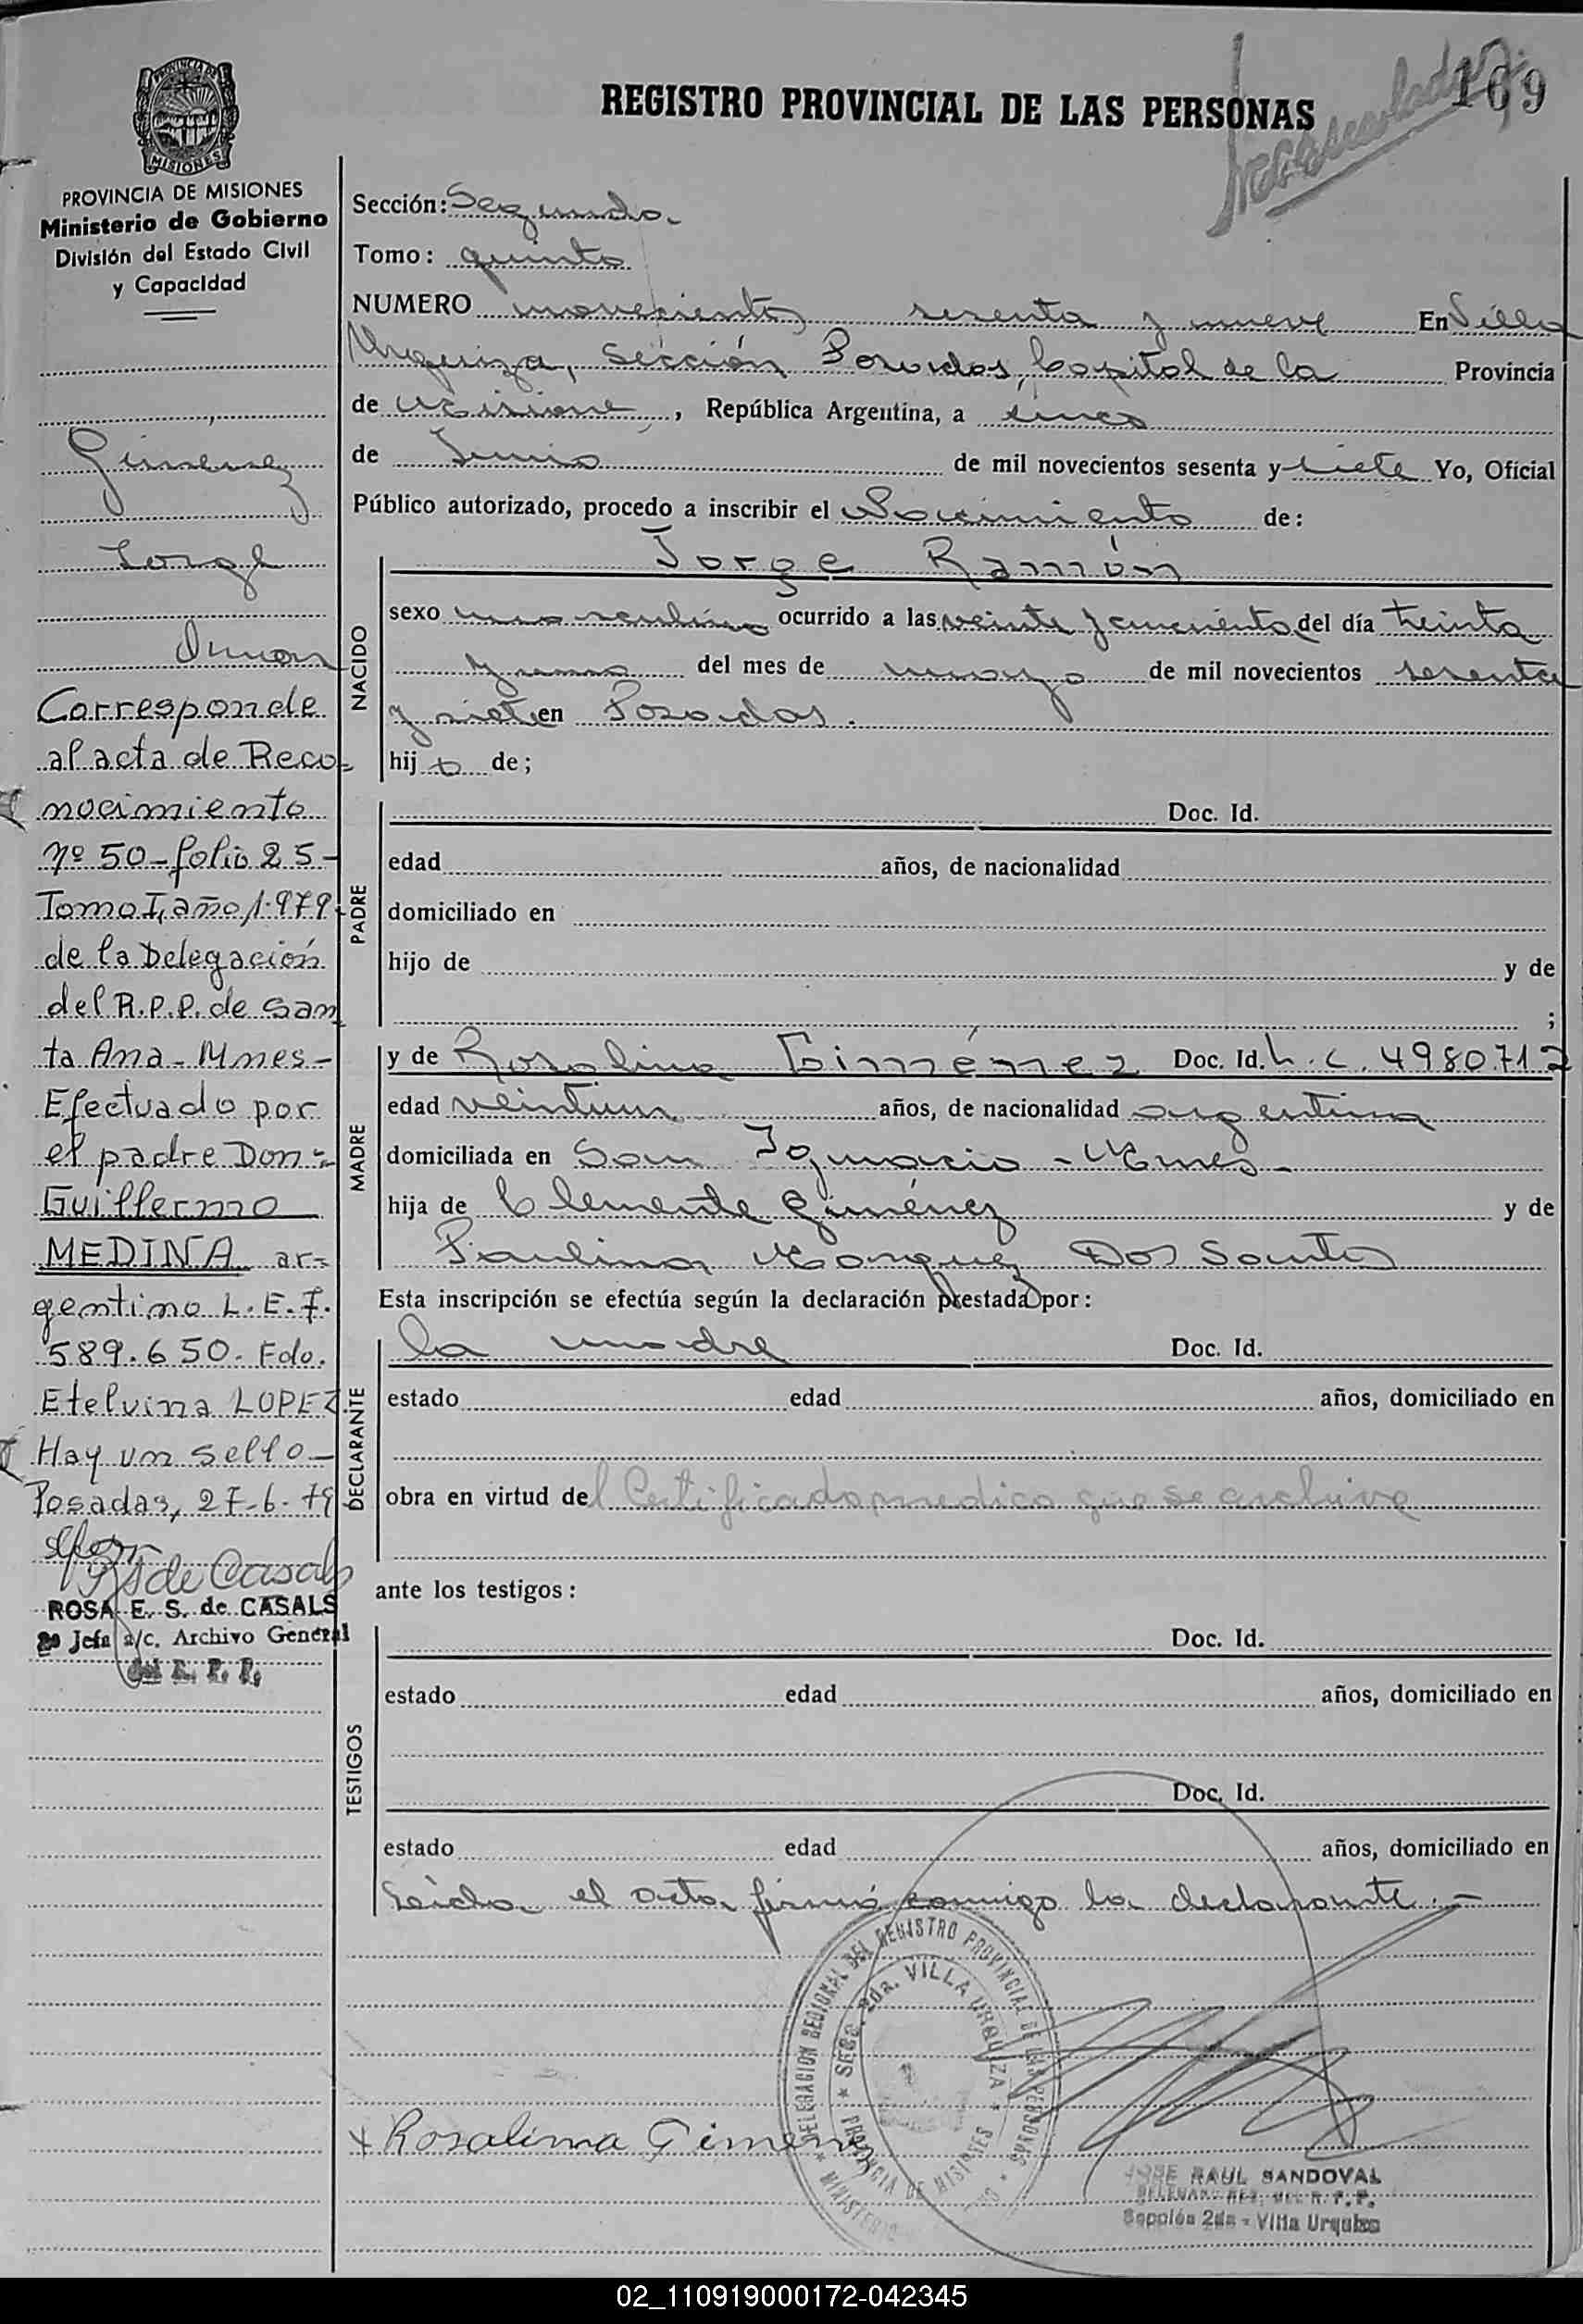 169
REGISTRO PROVINCIAL DE LAS PERSONAS
MISIONES
PROVINCIA DE MISIONES
Ministerio de Gobierno
División del Estado Civil
y Capacidad
Gimenez
Jorge
Ramon
Corresponde
al acta de Reco-
nocimiento
Nº 50-folio 25-
Tomo I, año 1979
de la Delegación
del R.P.P. de San
ta Ana-Mnes-
Efectuado por
el padre Don=
Guillermo
MEDINA ar=
gentino L.E.7.
589.650. Fdo.
Etelvina LOPEZ
Hay un sello-
Posadas, 27-6-79
ROSA E. S. de CASALS
2º Jefa a/c. Archivo General
del R. P. P.
Sección: Segunda.
Tomo: quinto
NUMERO novecientos sesenta y nueve En Villa
Urquiza, Sección Posadas, Capital de la Provincia
de Misiones, República Argentina, a cinco
de Junio de mil novecientos sesenta y siete Yo, Oficial
Público autorizado, procedo a inscribir el Nacimiento de:
NACIDO
Jorge Ramón
sexo masculino ocurrido a las veinte y cincuenta del día treinta
y uno del mes de mayo de mil novecientos sesenta
y siete en Posadas.
hij o de;
PADRE
Doc. Id.
edad años, de nacionalidad
domiciliado en
hijo de y de
;
MADRE
y de Rosalina Giménez Doc. Id. L.C. 4980.712
edad veintiun años, de nacionalidad argentina
domiciliada en San Ignacio - Mnes-
hija de Clemente Giménez y de
Paulina Marquez Dos Santos
Esta inscripción se efectúa según la declaración prestada por:
DECLARANTE
la madre Doc. Id.
estado edad años, domiciliado en
obra en virtud del Certificado medico que se archiva
ante los testigos:
TESTIGOS
Doc. Id.
estado edad años, domiciliado en
Doc. Id.
estado edad años, domiciliado en
Leida el acta, firmó conmigo la declarante.-
DELEGACION REGIONAL DEL REGISTRO PROVINCIAL DE LAS PERSONAS
SECC. 2da. VILLA URQUIZA
PROVINCIA DE MISIONES
MINISTERIO
x Rosalina Gimenez
JOSE RAUL SANDOVAL
DELEGADO REG. DEL R.P.P.
Sección 2da - Villa Urquiza
02_110919000172-042345